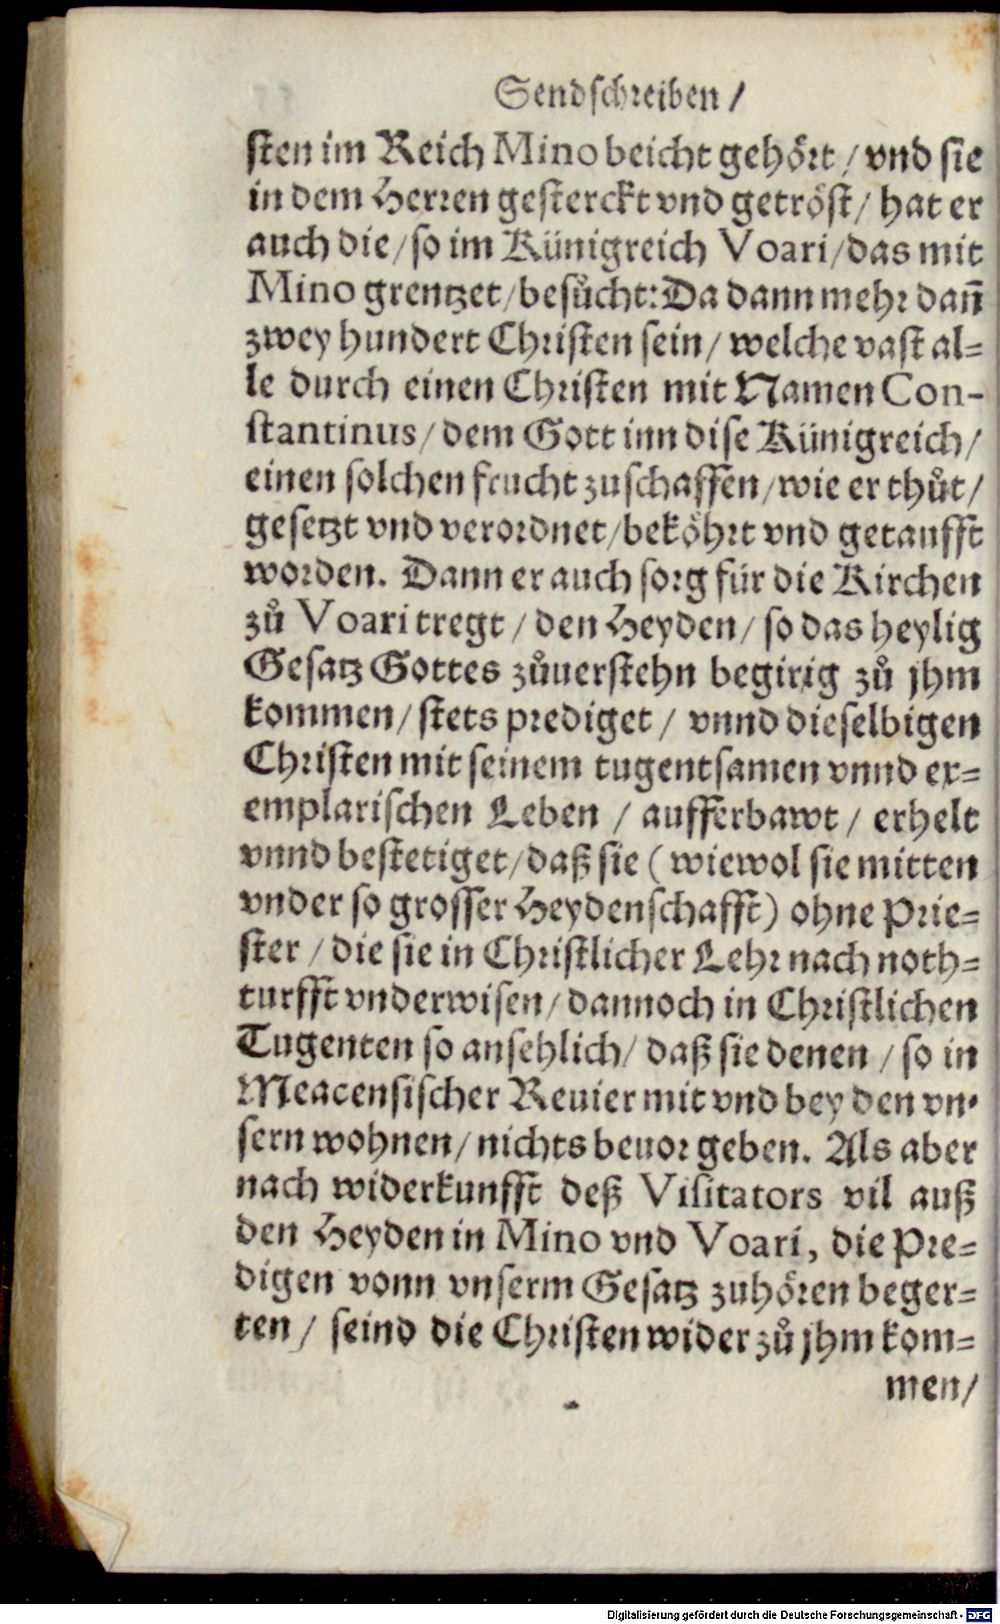 Sendschreiben /
sten im Reich Mino beicht gehört / vnd sie
in dem Herren gesterckt vnd getröst / hat er
auch die / so im Künigreich Voari / das mit
Mino grentzet / besůcht: Da dann mehr dañ
zwey hundert Christen sein / welche vast al=
le durch einen Christen mit Namen Con-
stantinus / dem Gott inn dise Künigreich /
einen solchen frucht zuschaffen / wie er thůt /
gesetzt vnd verordnet / beköhrt vnd getaufft
worden. Dann er auch sorg für die Kirchen
zů Voari tregt / den Heyden / so das heylig
Gesatz Gottes zůuerstehn begirig zů jhm
kommen / stets prediget / vnnd dieselbigen
Christen mit seinem tugentsamen vnnd ex=
emplarischen Leben / aufferbawt / erhelt
vnnd bestetiget / daß sie (wiewol sie mitten
vnder so grosser Heydenschafft) ohne Prie=
ster / die sie in Christlicher Lehr nach noth=
turfft vnderwisen / dannoch in Christlichen
Tugenten so ansehlich / daß sie denen / so in
Meacensischer Reuier mit vnd bey den vn=
sern wohnen / nichts beuor geben. Als aber
nach widerkunfft deß Visitators vil auß
den Heyden in Mino vnd Voari, die Pre=
digen vonn vnserm Gesatz zuhören beger=
ten / seind die Christen wider zů jhm kom=
men /
Digitalisierung gefördert durch die Deutsche Forschungsgemeinschaft - DFG